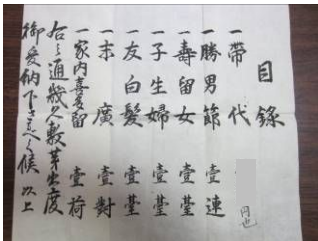 目録
一帯代
円也
一勝男節 壹連
一壽留女 壹䑓
一子生婦 壹䑓
一友白髪 壹䑓
一末廣 壹對
一家内喜多留 壹荷
右之通幾久敷芽出度
御受納下さるべく候 以上